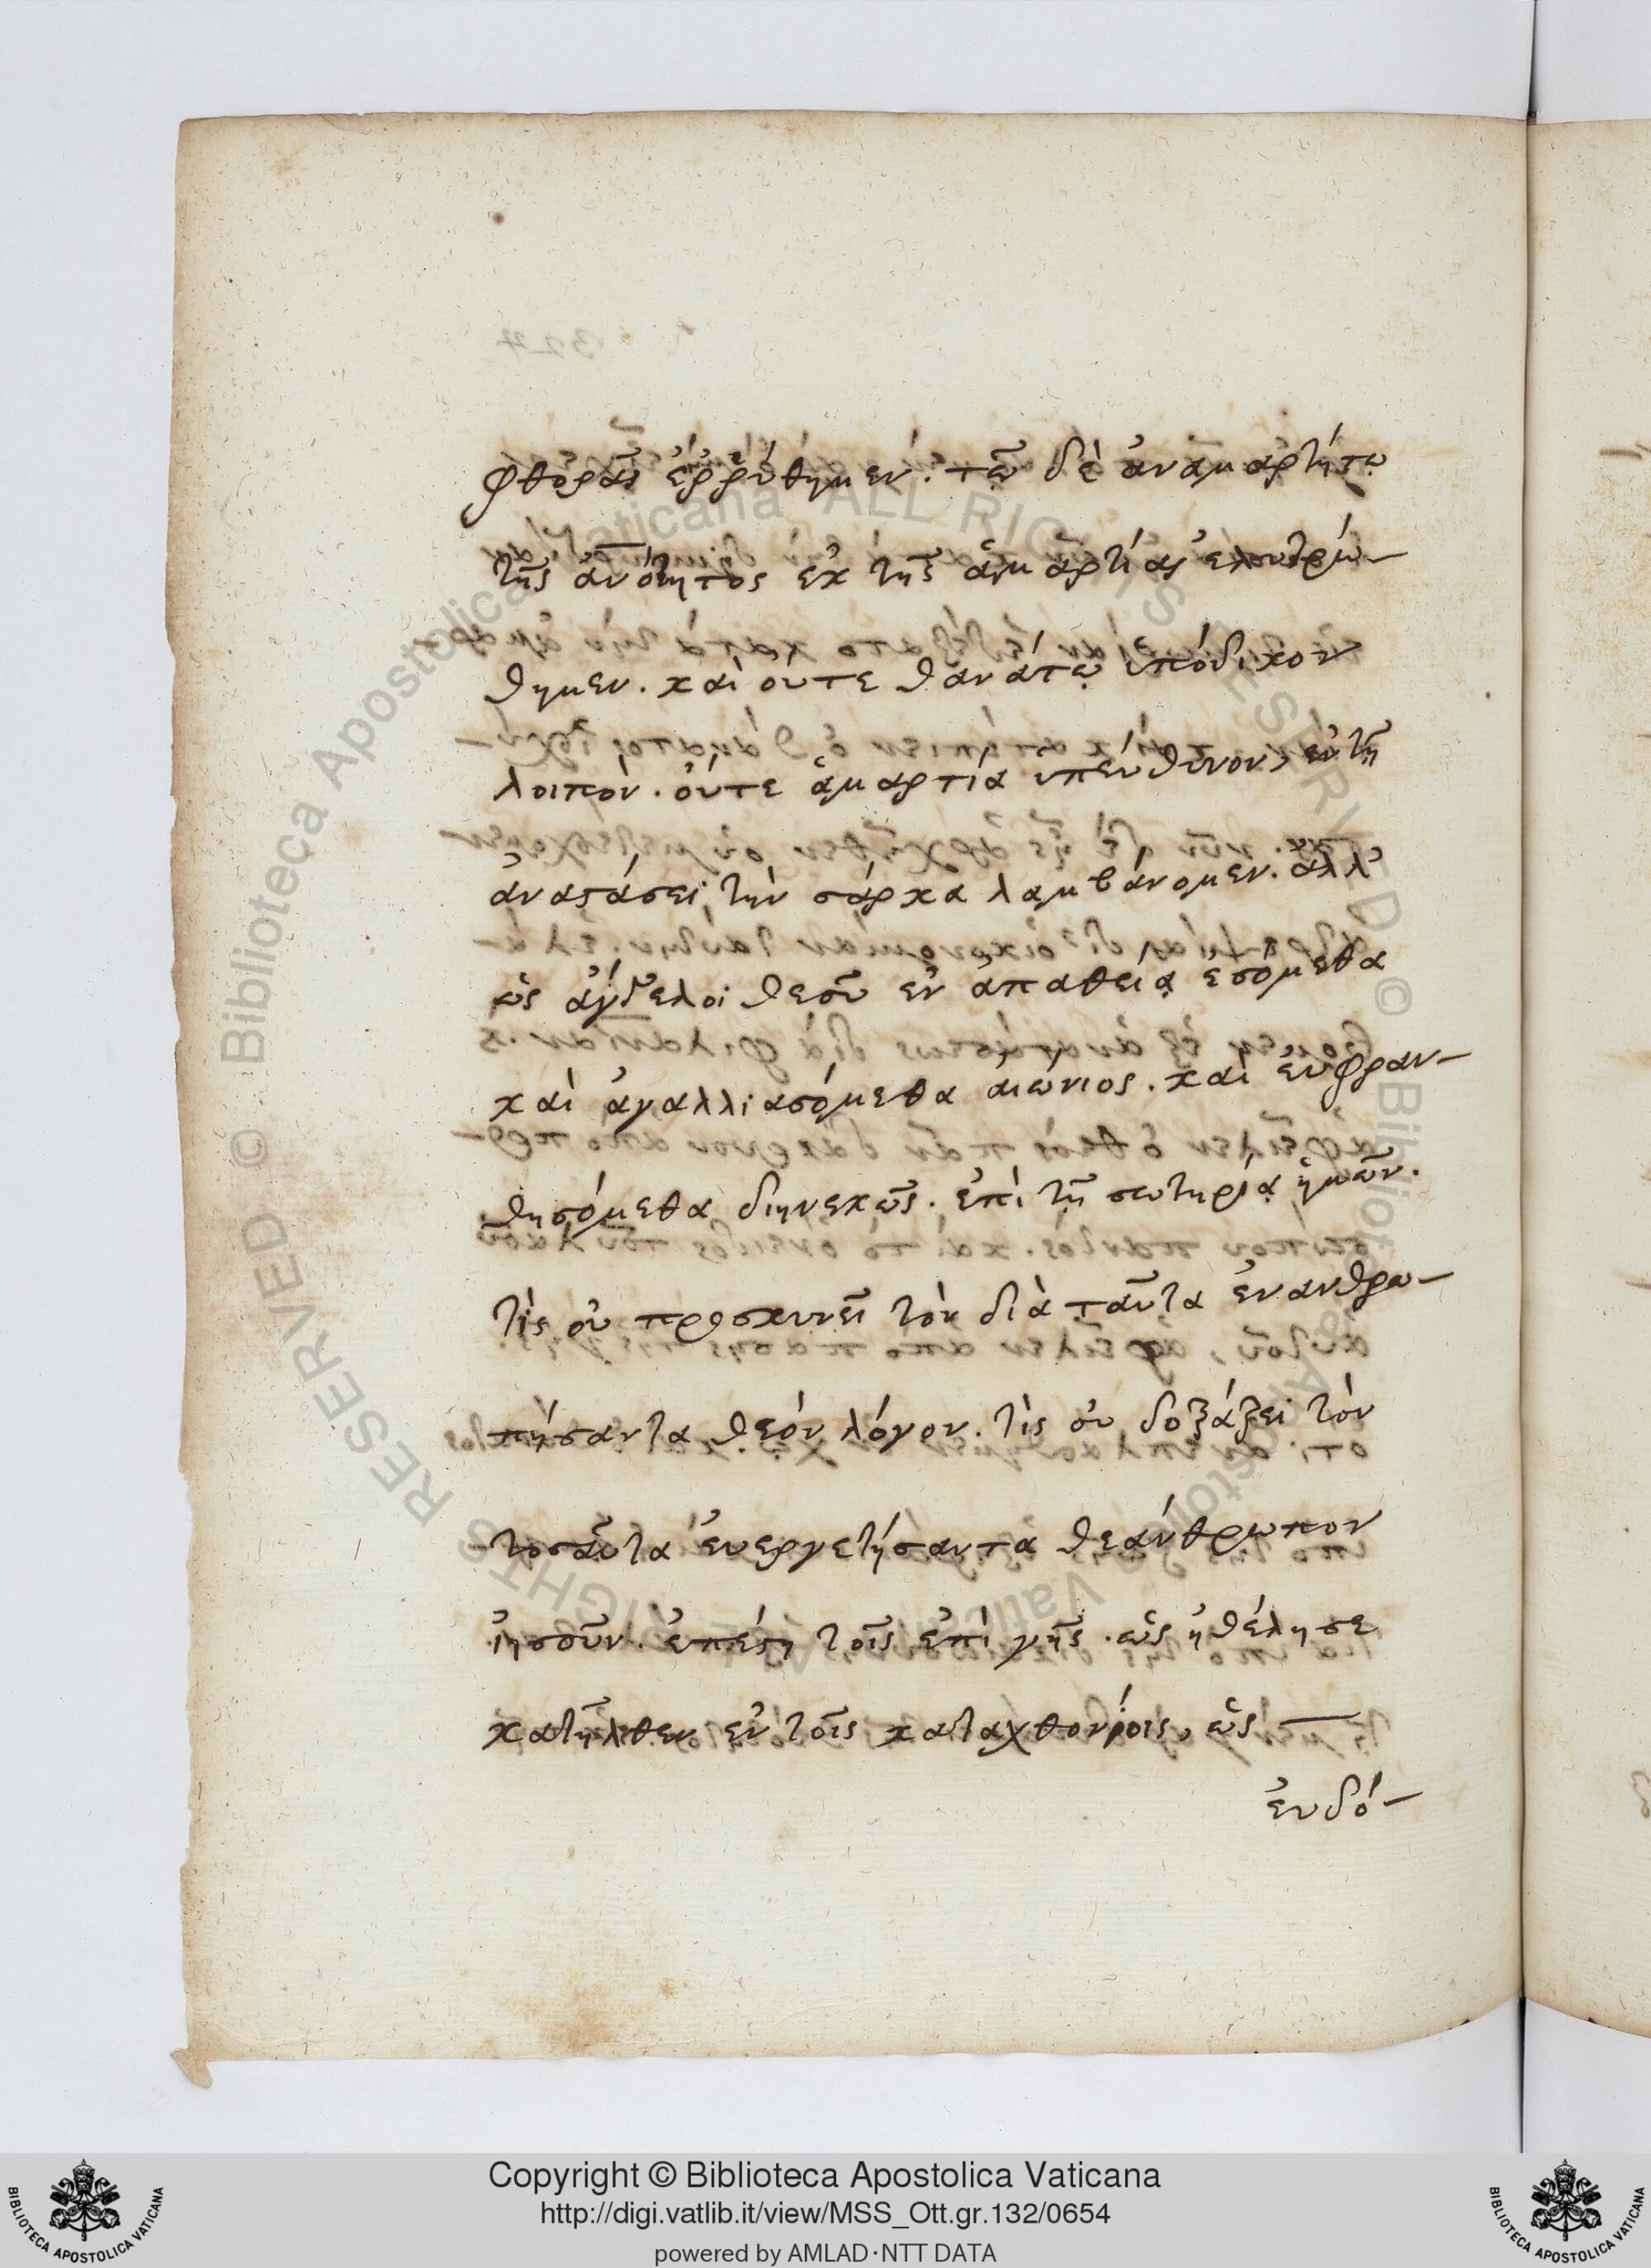 φθορᾶς ἐῤῥύθημεν. τῶ δὲ ἀναμαρτήτῳ
τῆς ἀν̅ότητος ἐκ τῆς ἁμαρτίας ἐλουτρώ-
θημεν. καὶ ουτε θανάτῳ ὑπόδικον
λοιπόν. οὔτε ἁμαρτία ὑπεύθυνον, ἐν τῆ
ἀναστάσει τὴν σάρκα λαμβάνομεν. ἀλλ'
ὡς ἄγγελοι θεοῦ ἐν ἀπαθείᾳ ἐσόμεθα
καὶ ἀγαλλιασόμεθα αἰώνιος. καὶ εὐφραν-
θησόμεθα διηνεκῶς. ἐπὶ τῆ σωτηρίᾳ ἡμῶν.
τὶς οὐ προσκυνεῖ τὸν διὰ ταῦτα ἐνανθρω-
πήσαντα θεὸν λόγον. τὶς οὐ δοξάζει τὸν
τοσαῦτα ἐυεργετήσαντα θεάνθρωπον
ἰησοῦν. ἐπέστη τοῖς ἐπὶ γῆς. ὡς ἠθέλησε
κατῆλθεν ἐν τοῖς καταχθονίοις, ὡς —
ἐυδό-
Copyright © Biblioteca Apostolica Vaticana
http://digi.vatlib.it/view/MSS_Ott.gr.132/0654
powered by AMLAD·NTT DATA
BIBLIOTECA APOSTOLICA VATICANA
BIBLIOTECA APOSTOLICA VATICANA